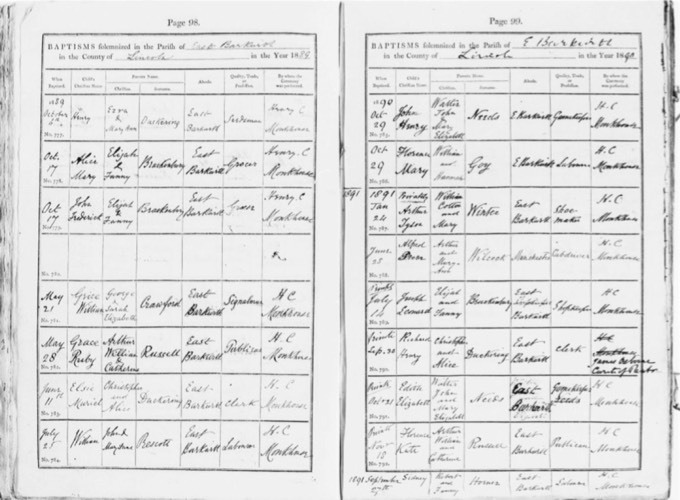 Page 98.
BAPTISMS solemnized in the Parish of East Barkwith
in the County of Lincoln in the Year 1889
When Baptized. Child's Christian Name. Parents Name. Christian. Surname. Abode. Quality, Trade, or Profession. By whom the Ceremony was performed.
1889 October No. 777. Henry Ezra & Mary Ann Duckering East Barkwith Henry C Monkhouse
Oct. 17 No. 778. Alice Mary Elijah & Fanny Brackenbury East Barkwith Grocer Henry C Monkhouse
Oct 17 No. 779. John Frederick Elijah & Fanny Brackenbury East Barkwith Grocer Henry C Monkhouse
No. 780.
May 21 William George & Sarah Elizabeth Crawford East Barkwith Signalman H C Monkhouse
May 28 Grace Ruby Arthur William & Catherine Russell East Barkwith Publican H C Monkhouse
June 11th No. 783. Elsie Muriel Christopher and Alice Duckering East Barkwith Clerk H C Monkhouse
July No. 784. William John & East Barkwith Labourer H C Monkhouse
Page 99.
BAPTISMS solemnized in the Parish of E Barkwith
in the County of Lincoln in the Year 1890
When Baptized. Child's Christian Name. Parents Name. Christian. Surname. Abode. Quality, Trade, or Profession. By whom the Ceremony was performed.
1890 Oct 29 No. 785. John Henry Walter John & Mary Elizabeth Needs E Barkwith Gamekeeper H C Monkhouse
Oct 29 No. 786. Florence Mary William and Goy E Barkwith Labourer H C Monkhouse
1891
1891 Jan 24 No. 787. Privately Arthur William and Mary Winter East Barkwith Shoemaker H C Monkhouse
June No. 788. Alfred Arthur and Mary Ann Wilcock H C Monkhouse
July 14 Joseph Leonard Elijah and Fanny Brackenbury East Barkwith Shopkeeper H C Monkhouse
Private Sep. 20 Richard Christopher and Alice Duckering East Barkwith Clerk
Private Oct 31 Edith Elizabeth Walter John and Mary Elizabeth Needs East Barkwith Gamekeeper H C Monkhouse
Nov Florence Kate Arthur William and Catherine East Barkwith Publican H C Monkhouse
1891 September Sidney Robert and Fanny East Barkwith Labourer H C Monkhouse